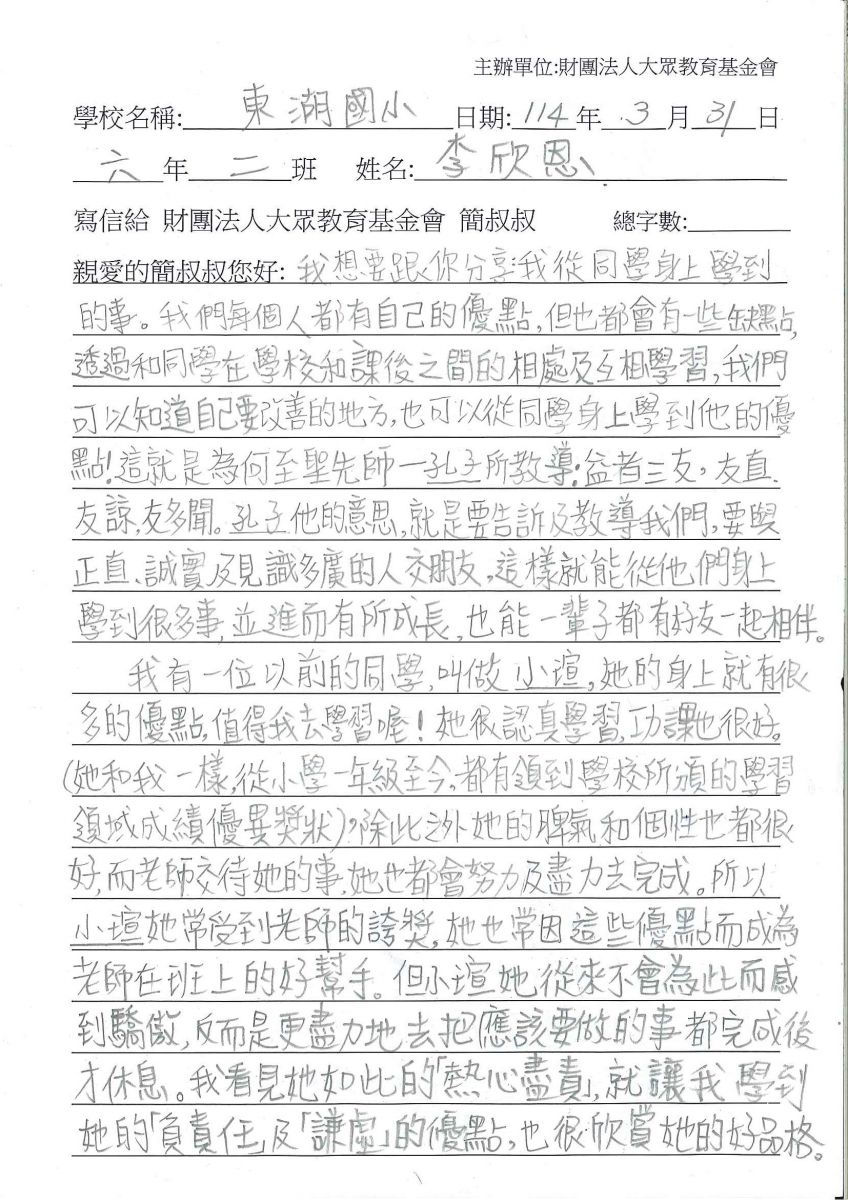 主辦單位:財團法人大眾教育基金會
學校名稱: 東湖國小 日期: 114 年 3 月 31 日
六 年 二 班 姓名: 李欣恩
寫信給 財團法人大眾教育基金會 簡叔叔 總字數:
親愛的簡叔叔您好: 我想要跟你分享我從同學身上學到
的事。我們每個人都有自己的優點,但也都會有一些缺點,
透過和同學在學校和課後之間的相處及互相學習,我們
可以知道自己要改善的地方,也可以從同學身上學到他的優
點!這就是為何至聖先師一孔子所教導:益者三友,友直、
友諒,友多聞。孔子他的意思,就是要告訴及教導我們,要與
正直、誠實及見識多廣的人交朋友,這樣就能從他們身上
學到很多事,並進而有所成長,也能一輩子都有好友一起相伴。
我有一位以前的同學,叫做小瑄,她的身上就有很
多的優點,值得我去學習喔!她很認真學習,功課也很好。
(她和我一樣,從小學一年級至今,都有領到學校所頒的學習
領域成績優異獎狀),除此之外她的脾氣和個性也都很
好,而老師交待她的事,她也都會努力及盡力去完成。所以
小瑄她常受到老師的誇獎,她也常因這些優點而成為
老師在班上的好幫手。但小瑄她從來不會為此而感
到驕傲,反而是更盡力地去把應該要做的事都完成後
才休息。我看見她如此的「熱心盡責」,就讓我學到
她的「負責任」及「謙虛」的優點,也很欣賞她的好品格。